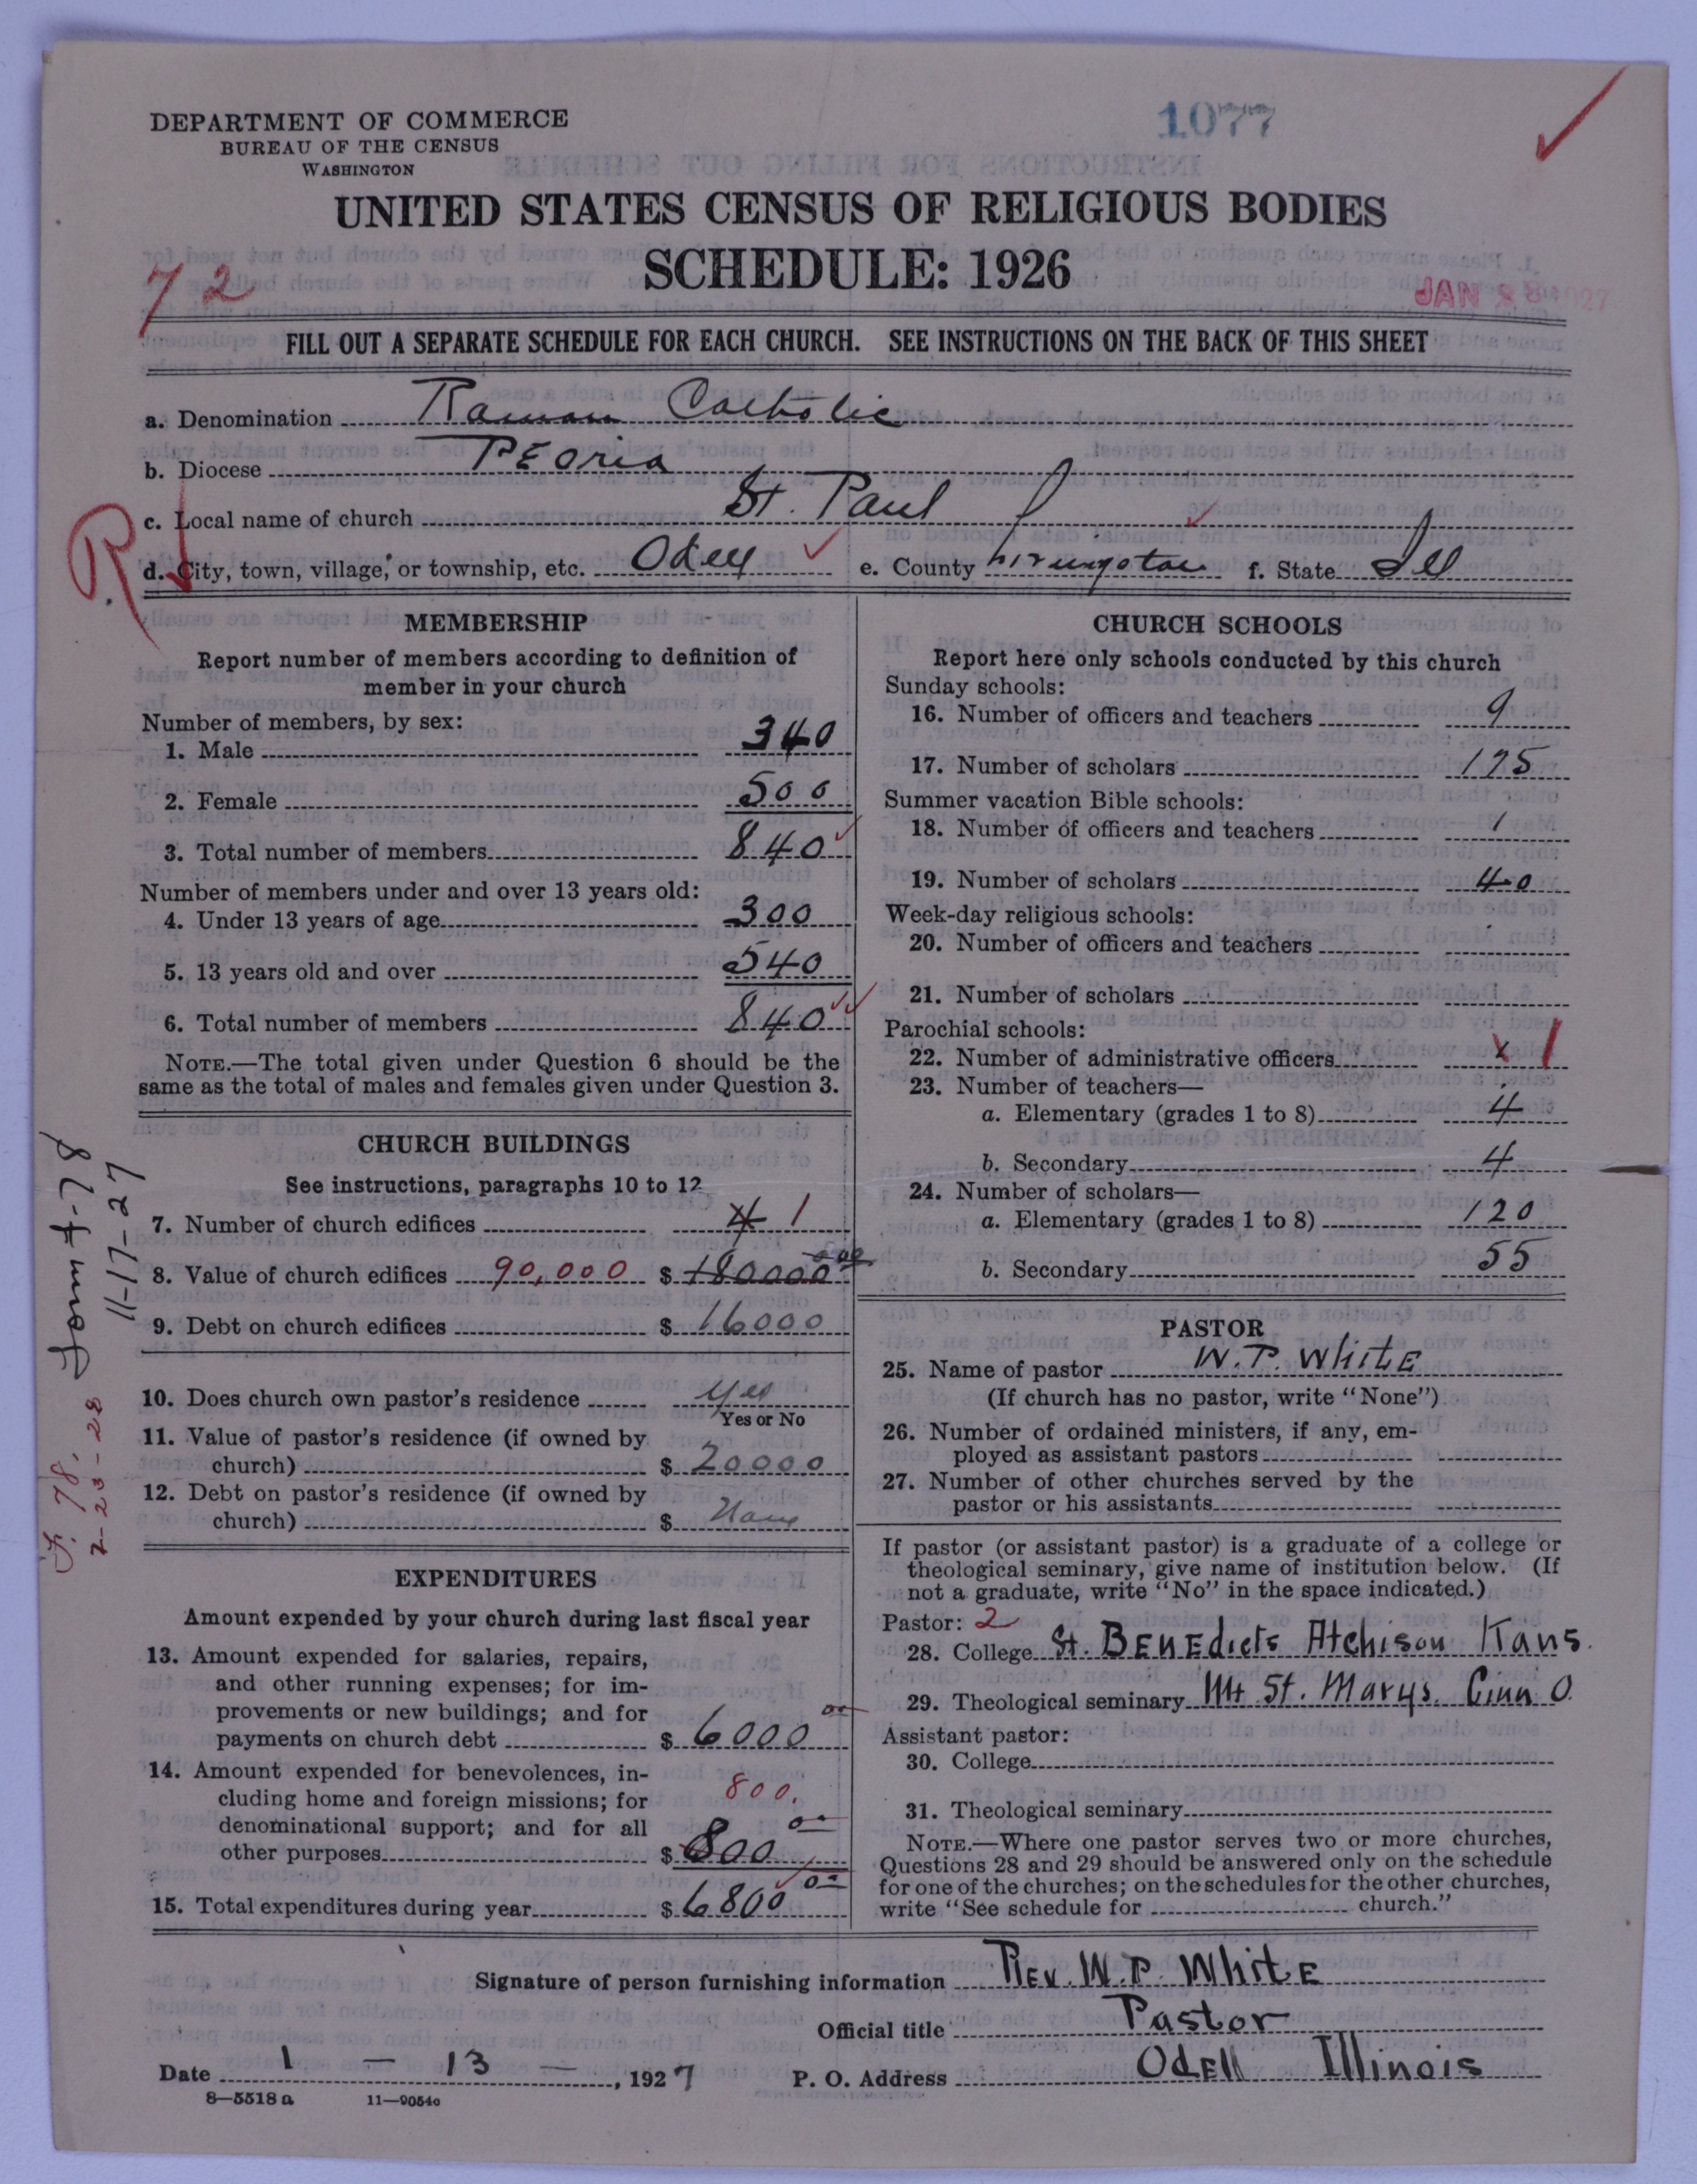 1077
DEPARTMENT OF COMMERCE
BUREAU OF THE CENSUS
WASHINGTON
UNITED STATES CENSUS OF RELIGIOUS BODIES
SCHEDULE: 1926
72
JAN 28 1927
FILL OUT A SEPARATE SCHEDULE FOR EACH CHURCH. SEE INSTRUCTIONS ON THE BACK OF THIS SHEET
a. Denomination Roman Catholic
b. Diocese PEoria
c. Local name of church St. Paul
R
d. City, town, village, or township, etc. Odell e. County Livingston f. State Ill
MEMBERSHIP
Report number of members according to definition of
member in your church
Number of members, by sex:
1. Male 340
2. Female 500
3. Total number of members 840
Number of members under and over 13 years old:
4. Under 13 years of age 300
5. 13 years old and over 540
6. Total number of members 840
NOTE.—The total given under Question 6 should be the
same as the total of males and females given under Question 3.
CHURCH BUILDINGS
See instructions, paragraphs 10 to 12
7. Number of church edifices 4 1
8. Value of church edifices 90,000 $ 180000
9. Debt on church edifices $ 16000
10. Does church own pastor's residence Yes
Yes or No
11. Value of pastor's residence (if owned by
church) $ 20000
12. Debt on pastor's residence (if owned by
church) $ None
EXPENDITURES
Amount expended by your church during last fiscal year
13. Amount expended for salaries, repairs,
and other running expenses; for im-
provements or new buildings; and for
payments on church debt $ 6000 00
14. Amount expended for benevolences, in-
cluding home and foreign missions; for 800.
denominational support; and for all
other purposes $ 800 00
15. Total expenditures during year $ 6800 00
11-17-27
F. 78.
2-23-28
CHURCH SCHOOLS
Report here only schools conducted by this church
Sunday schools:
16. Number of officers and teachers 9
17. Number of scholars 175
Summer vacation Bible schools:
18. Number of officers and teachers 1
19. Number of scholars 40
Week-day religious schools:
20. Number of officers and teachers
21. Number of scholars
Parochial schools:
22. Number of administrative officers x 1
23. Number of teachers—
a. Elementary (grades 1 to 8) 4
b. Secondary 4
24. Number of scholars—
a. Elementary (grades 1 to 8) 120
b. Secondary 55
PASTOR
25. Name of pastor W. P. WhitE
(If church has no pastor, write "None")
26. Number of ordained ministers, if any, em-
ployed as assistant pastors
27. Number of other churches served by the
pastor or his assistants
If pastor (or assistant pastor) is a graduate of a college or
theological seminary, give name of institution below. (If
not a graduate, write "No" in the space indicated.)
Pastor: 2
28. College St. BENEdicts Atchison Kans.
29. Theological seminary Mt St. Marys. Cinn O.
Assistant pastor:
30. College
31. Theological seminary
NOTE.—Where one pastor serves two or more churches,
Questions 28 and 29 should be answered only on the schedule
for one of the churches; on the schedules for the other churches,
write "See schedule for church."
Signature of person furnishing information REv. W. P. WhitE
Official title Pastor
Date 1 — 13 —, 1927 P. O. Address OdEll Illinois
8—5518 a 11—9054o